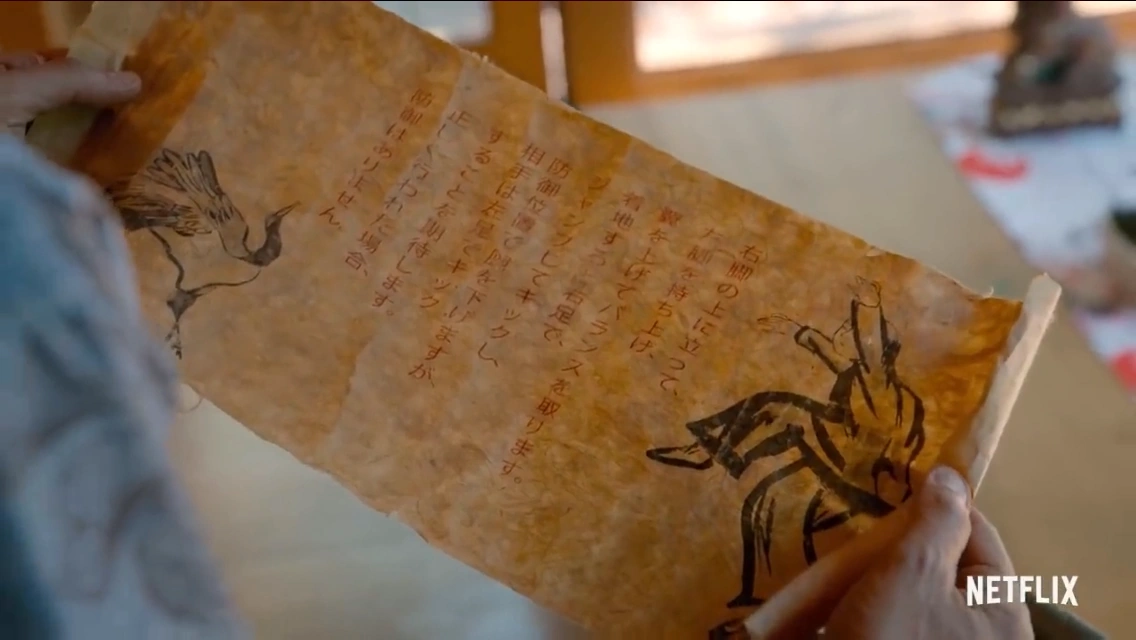 右脚の上に立って、
左脚を持ち上げ、
翼を上げてバランスを取ります。
着地すると右足で、
ジャンプしてキックし、
防御位置で を下げますが、
相手は左足でキック
することを期待します。
正しく行われた場合、
防御はありません。
NETFLIX